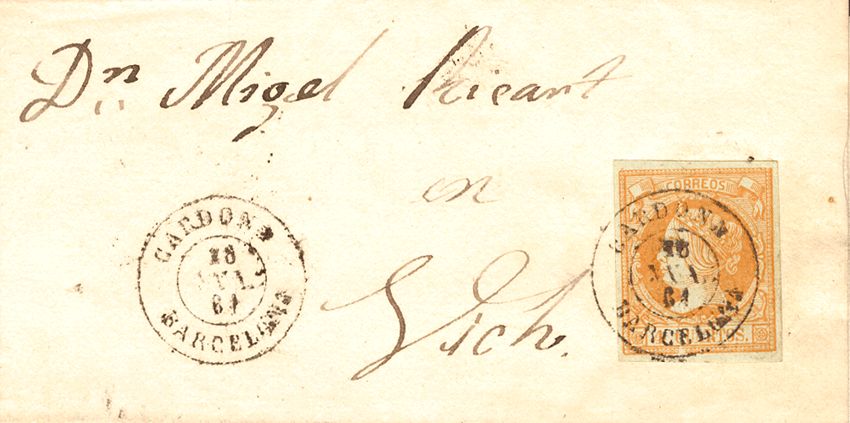 Dn Migel Ricart
en
Vich.
CARDONA
28
JUL.
61
BARCELONA
CORREOS
CARDONA
28
JUL.
61
BARCELONA